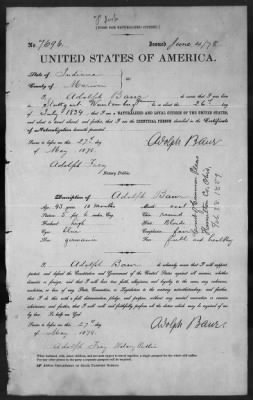 [FORM FOR NATURALIZED CITIZEN.]
No. 7696. Issued June 4/78
UNITED STATES OF AMERICA.
State of Indiana
County of Marion
I, Adolph Baur, do swear that I was born
at Stuttgart Wurtemburg on the 26th day
of July 1834, that I am a NATURALIZED AND LOYAL CITIZEN OF THE UNITED STATES,
and about to travel abroad; and further, that I am the IDENTICAL PERSON described in the Certificate
of Naturalization herewith presented.
Sworn to before me this 27th day
of May 1878.
Adolph Baur
Adolph Frey
Notary Public.
Description of Adolph Baur
Age: 43 years 10 months
Mouth:
Stature: 5 feet 6 inches Eng.
Chin: round
Forehead: high
Hair:
Eyes: blue
Complexion: fair
Nose:
Face: full and healthy
Common Pleas
Hamilton Co. Ohio
I, Adolph Baur, do solemnly swear that I will support,
protect, and defend the Constitution and Government of the United States against all enemies, whether
domestic or foreign; and that I will bear true faith, allegiance, and loyalty to the same, any ordinance,
resolution, or law of any State, Convention, or Legislature to the contrary notwithstanding; and further,
that I do this with a full determination, pledge, and purpose, without any mental reservation or evasion
whatsoever; and further, that I will well and faithfully perform all the duties which may be required of me
by law. So help me God.
Sworn to before me this 27th day
of May 1878.
Adolph Baur
Adolph Frey Notary Public